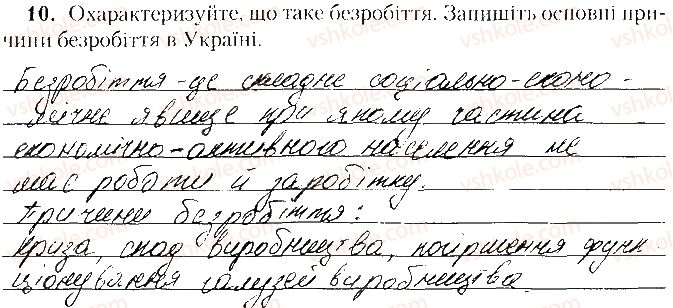 10. Охарактеризуйте, що таке безробіття. Запишіть основні при-
чини безробіття в Україні.
Безробіття - це складне соціально-еконо-
мічне явище при якому частина
економічно-активного населення не
має роботи й заробітку.
Причини безробіття:
криза, спад виробництва, погіршення функ
ціонування галузей виробництва.